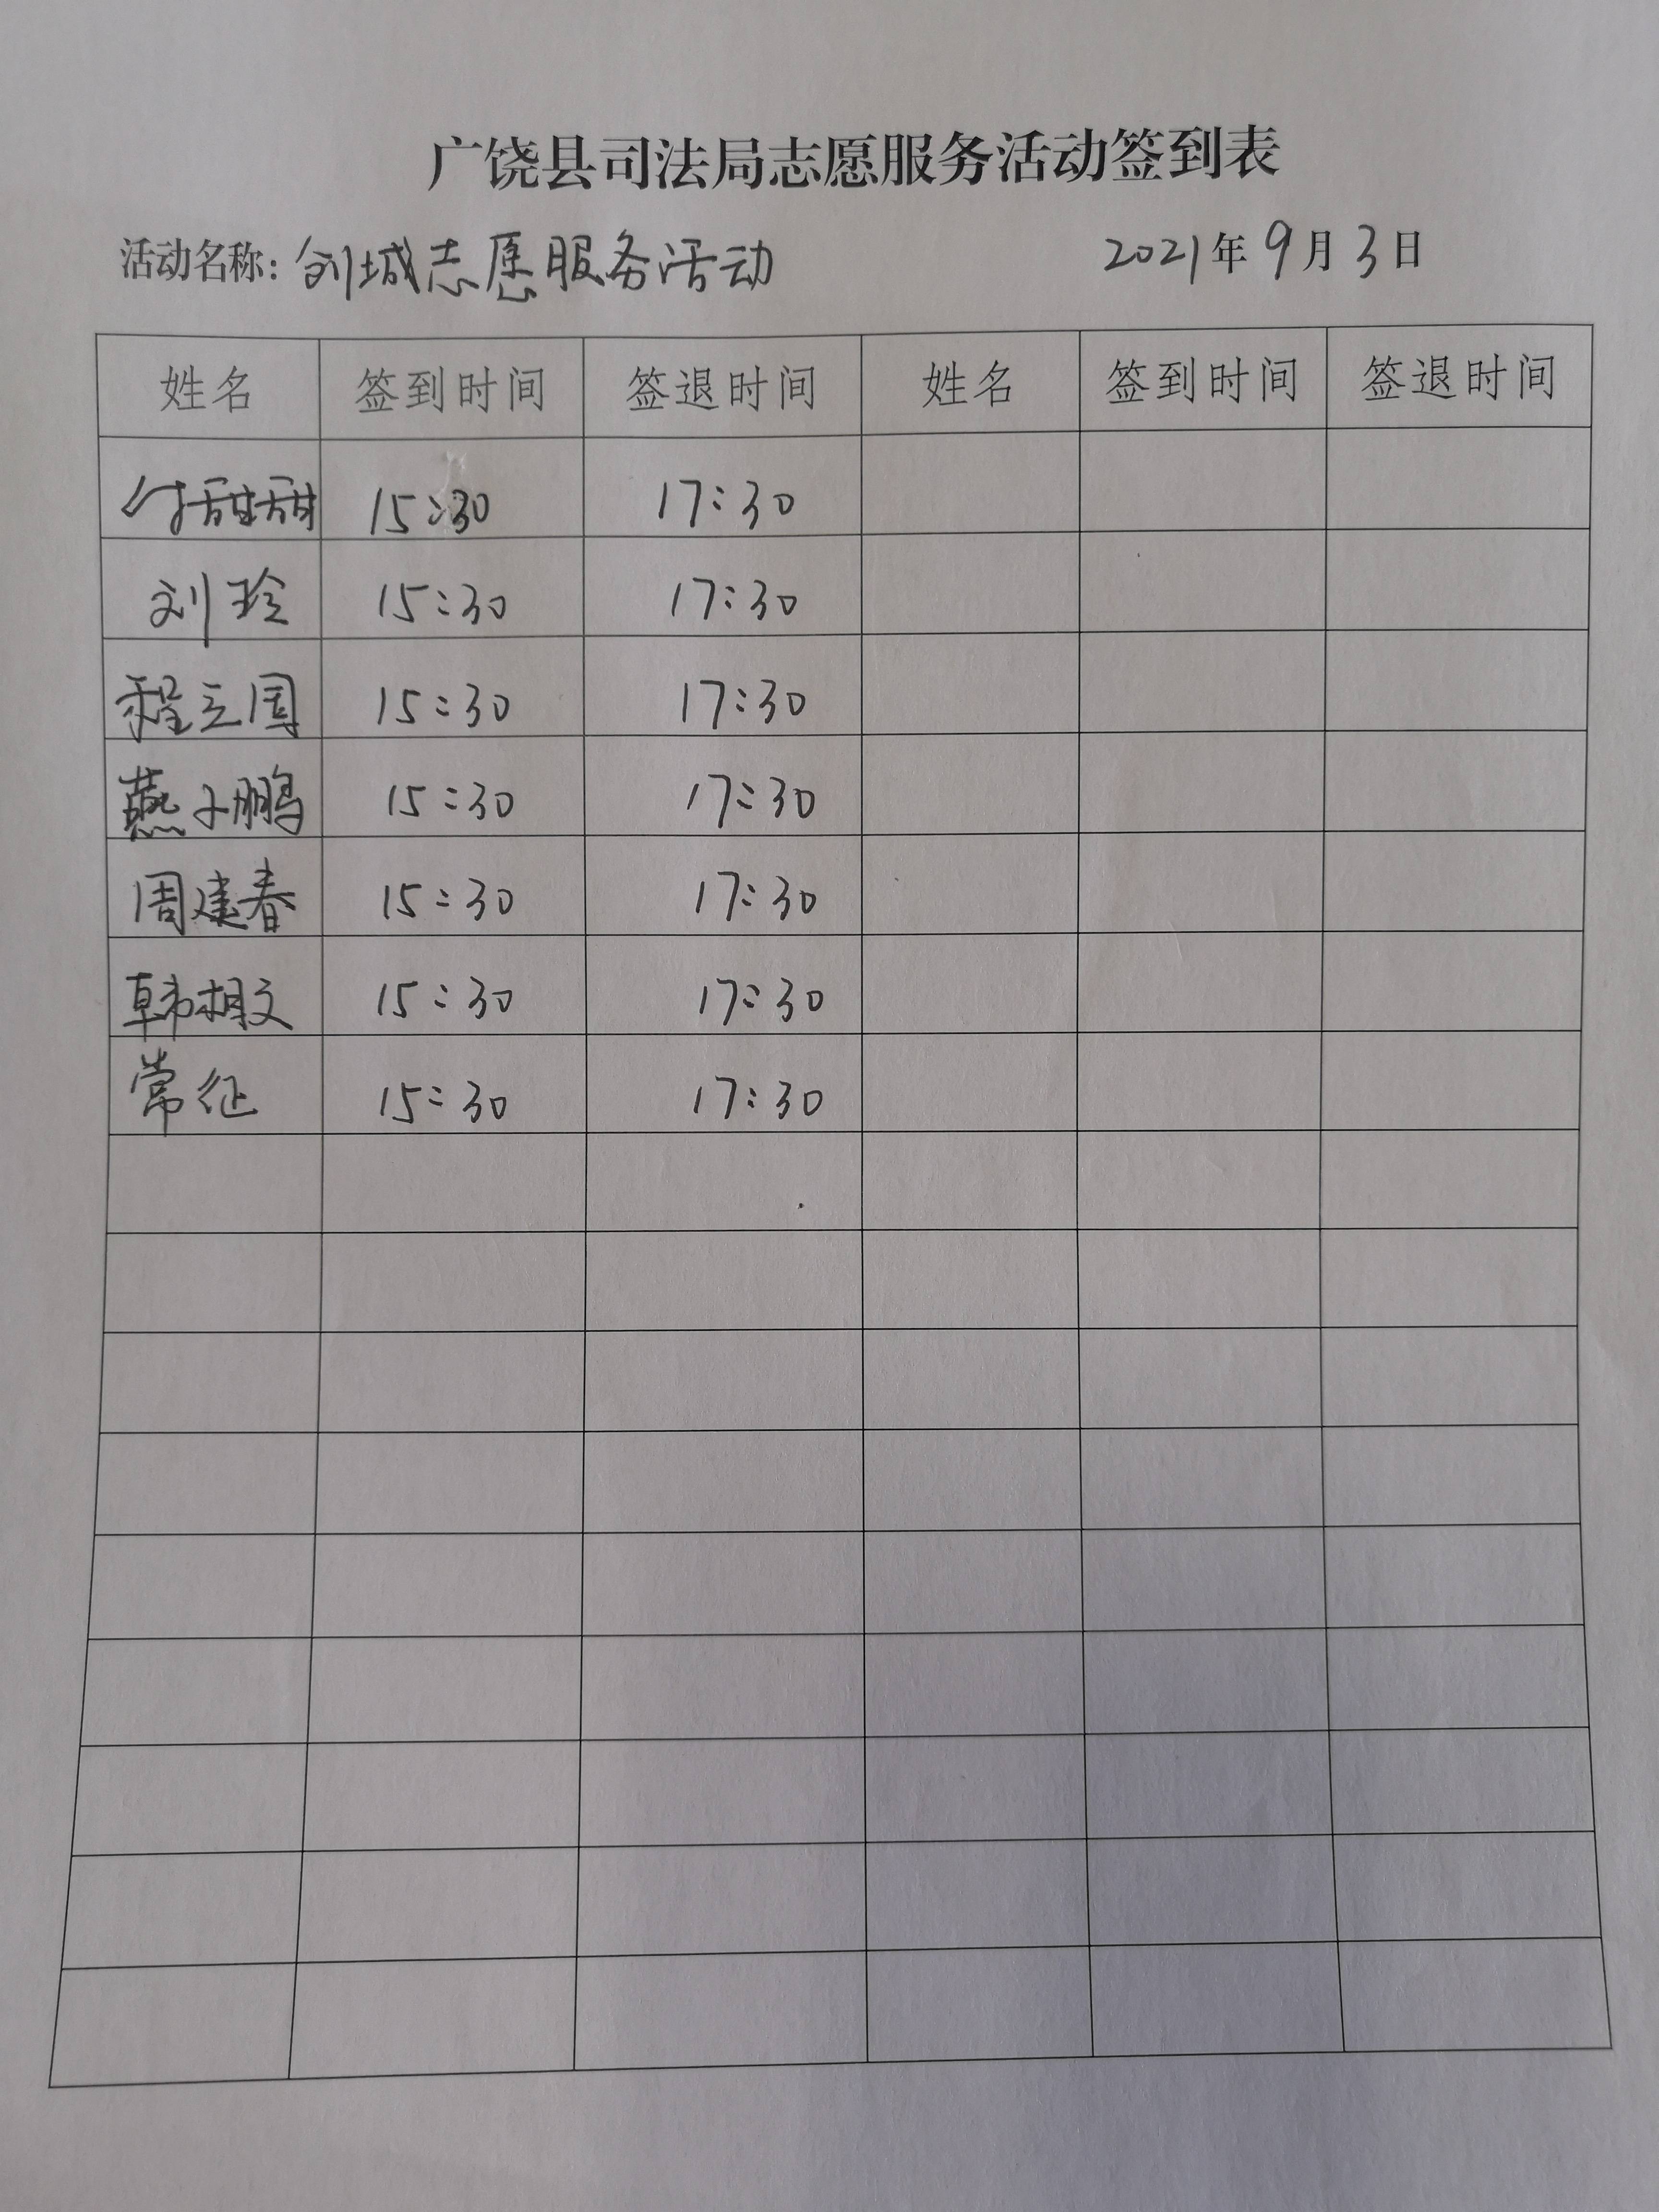 广饶县司法局志愿服务活动签到表
活动名称：创城志愿服务活动 2021年9月3日
姓名 签到时间 签退时间 姓名 签到时间 签退时间
付甜甜 15:30 17:30
刘玲 15:30 17:30
程立国 15:30 17:30
燕小鹏 15:30 17:30
周建春 15:30 17:30
韩相文 15:30 17:30
常征 15:30 17:30